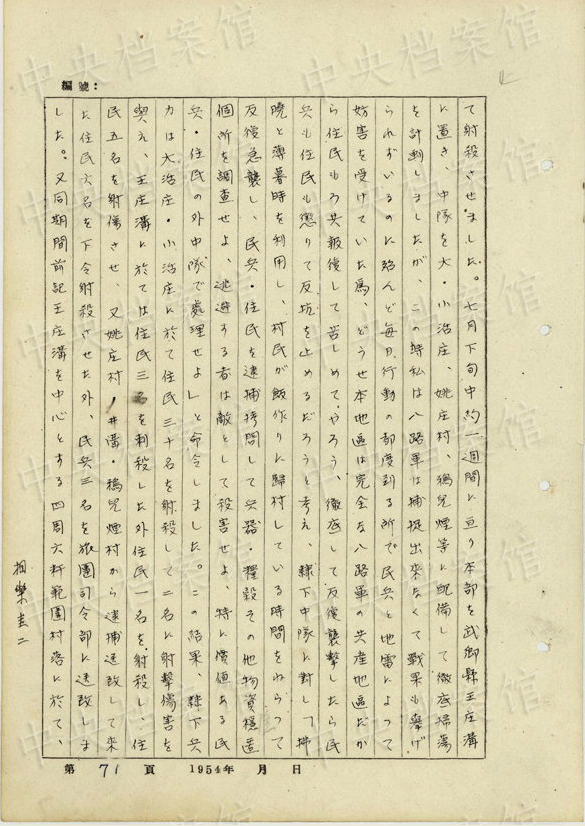 編號:
て射殺させました。七月下旬中約一週間に亘り本部を武鄉縣王庄溝
に置き、中隊を大・小治庄、姚庄村、鴉児煙等に配備して徹底掃蕩
を計劃しましたが、この時私は八路軍は捕捉出来なくて戰果も擧げ
られずいるのに殆んど毎日行動の都度到る所で民兵と地雷によって
妨害を受けていた為、どうせ本地區は完全な八路軍の共産地區だか
ら住民もろ共報復して苦しめてやろう、徹底して反復襲撃したら民
兵も住民も懲りて反抗を止めるだろうと考え、隷下中隊に対し「拂
曉と薄暮時を利用し、村民が飯作りに歸村している時間をねらって
反復急襲し、民兵・住民を逮捕拷問して兵器・糧穀その他物資隠匿
個所を調査せよ、逃避する者は敵として殺害せよ、特に價値ある民
兵・住民の外中隊で處理せよ」と命令しました。この結果、隷下兵
力は大治庄・小治庄に於て住民三十名を射殺して二名に射撃傷害を
與え、王庄溝に於ては住民三名を刺殺した外住民一名を射殺し、住
民五名を射傷させ、又姚庄村・井溝・鴉児煙村から逮捕送致して来
た住民六名を下令射殺させた外、民兵三名を旅團司令部に送致しま
した。又同期間前記王庄溝を中心とする四周六粁範圍村落に於て、
相樂圭二
第 71 頁 1954年 月 日
中央档案馆